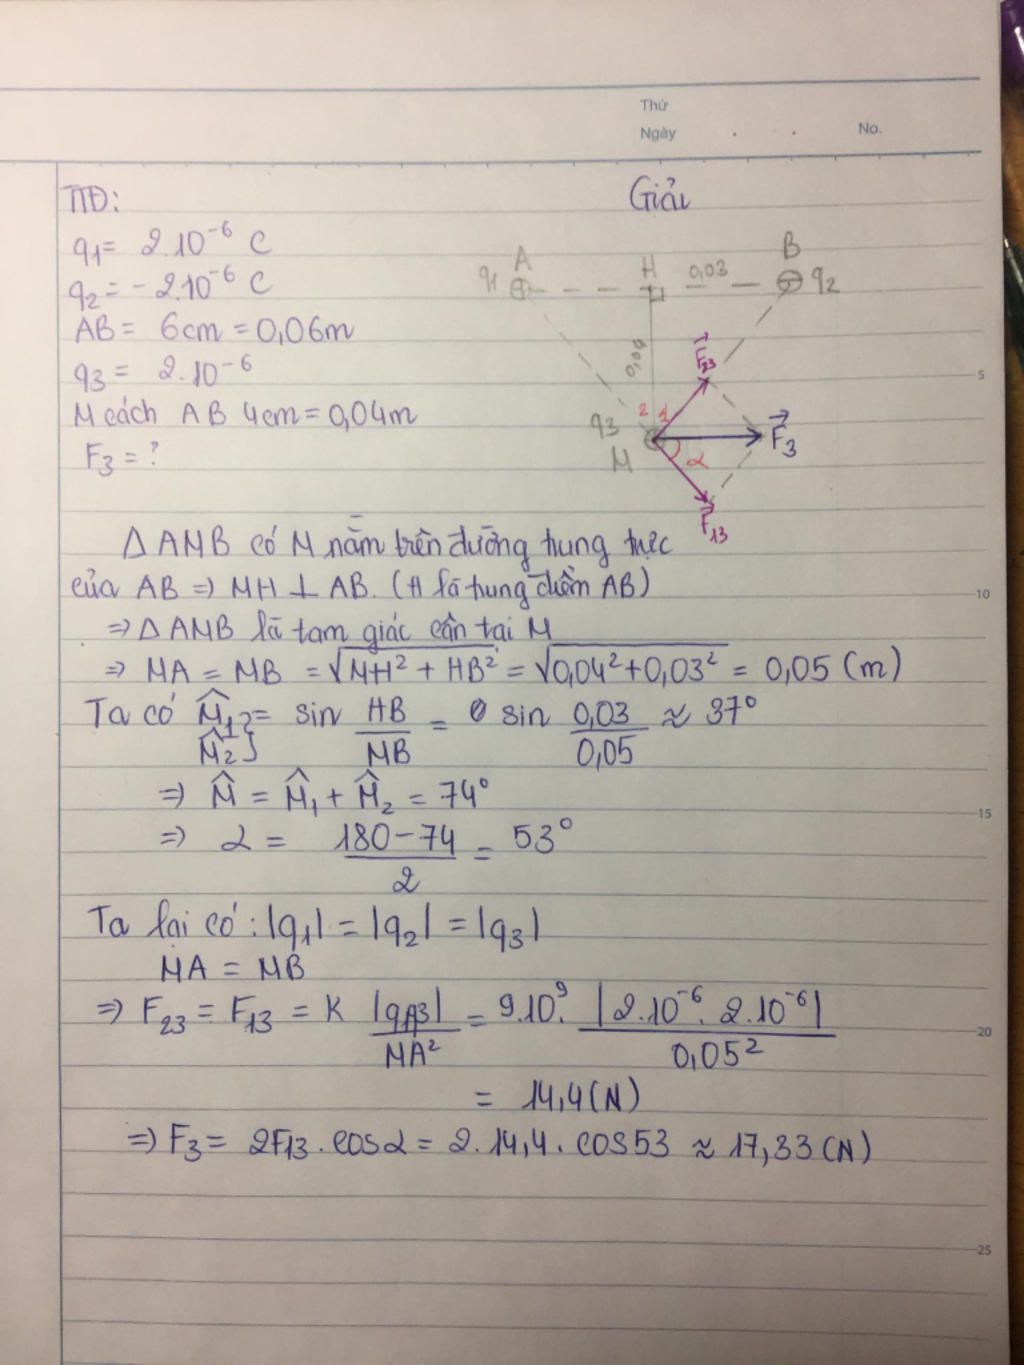 Thứ
Ngày . . No.
TTĐ:
Giải
q1= 2.10⁻⁶ C
q2= -2.10⁻⁶ C
AB= 6cm = 0,06m
q3= 2.10⁻⁶
M cách AB 4cm = 0,04m
F3 = ?
A H 0,03 B
q1 q2
0,04
F23
2 1
q3
M
α
F3
F13
5
Δ AMB có M nằm trên đường trung trực
của AB => MH ⊥ AB. (H là trung điểm AB)
10
=> Δ AMB là tam giác cân tại M
=> MA = MB = √MH² + HB² = √0,04² + 0,03² = 0,05 (m)
Ta có M̂1 = M̂2 } = sin HB/MB = sin 0,03/0,05 ≈ 37°
=> M̂ = M̂1 + M̂2 = 74°
15
=> α = 180-74/2 = 53°
Ta lại có: |q1| = |q2| = |q3|
MA = MB
=> F23 = F13 = K |q1q3|/MA² = 9.10⁹. |2.10⁻⁶. 2.10⁻⁶|/0,05²
20
= 14,4 (N)
=> F3 = 2F13. cosα = 2. 14,4. cos53 ≈ 17,33 (N)
25